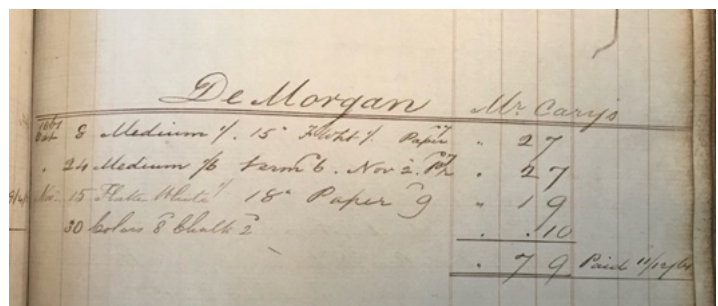 De Morgan Mr Cary's
Oct 8 Medium 1/. 15" F. Wht 1/. Paper 7 " 2 7
" 24 Medium 1/6 6. Nov 2. 7 " 2 7
Nov. 15 Flake White 1/ 18" Paper 9 " 1 9
30 Colors 8 Chalk 2 " . 10
" 7 9 Paid 11/12/61